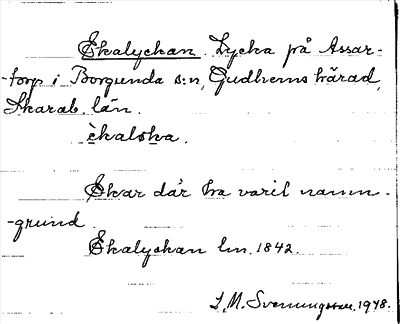 Ekalyckan. Lycka på Assar-
-torp i Borgunda s:n, Gudhems härad,
Skarab. län.
èkaloka.
Ekar där ha varit namn-
-grund.
Ekalyckan lm. 1842.
I. M. Svenungsson. 1948.